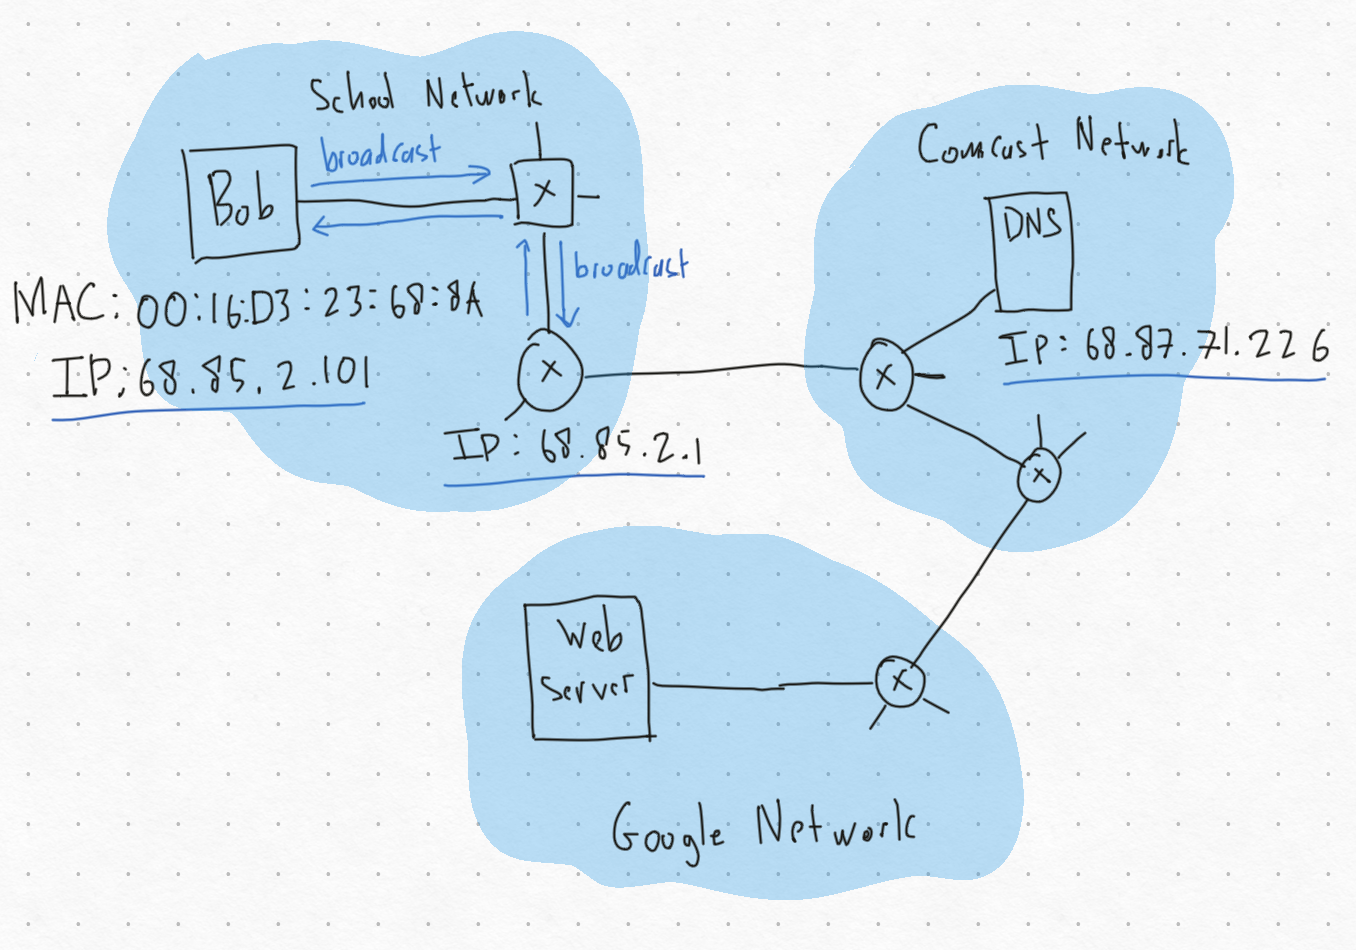 School Network
broadcast
Bob
X
MAC: 00:16:D3:23:68:8A
IP: 68.85.2.101
broadcast
X
IP: 68.85.2.1
Comcast Network
DNS
IP: 68.87.71.226
X
X
Web
Server
X
Google Network